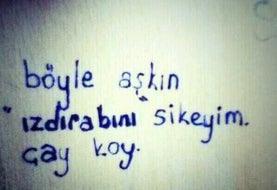 böyle aşkın
"ızdırabını" sikeyim.
çay koy.